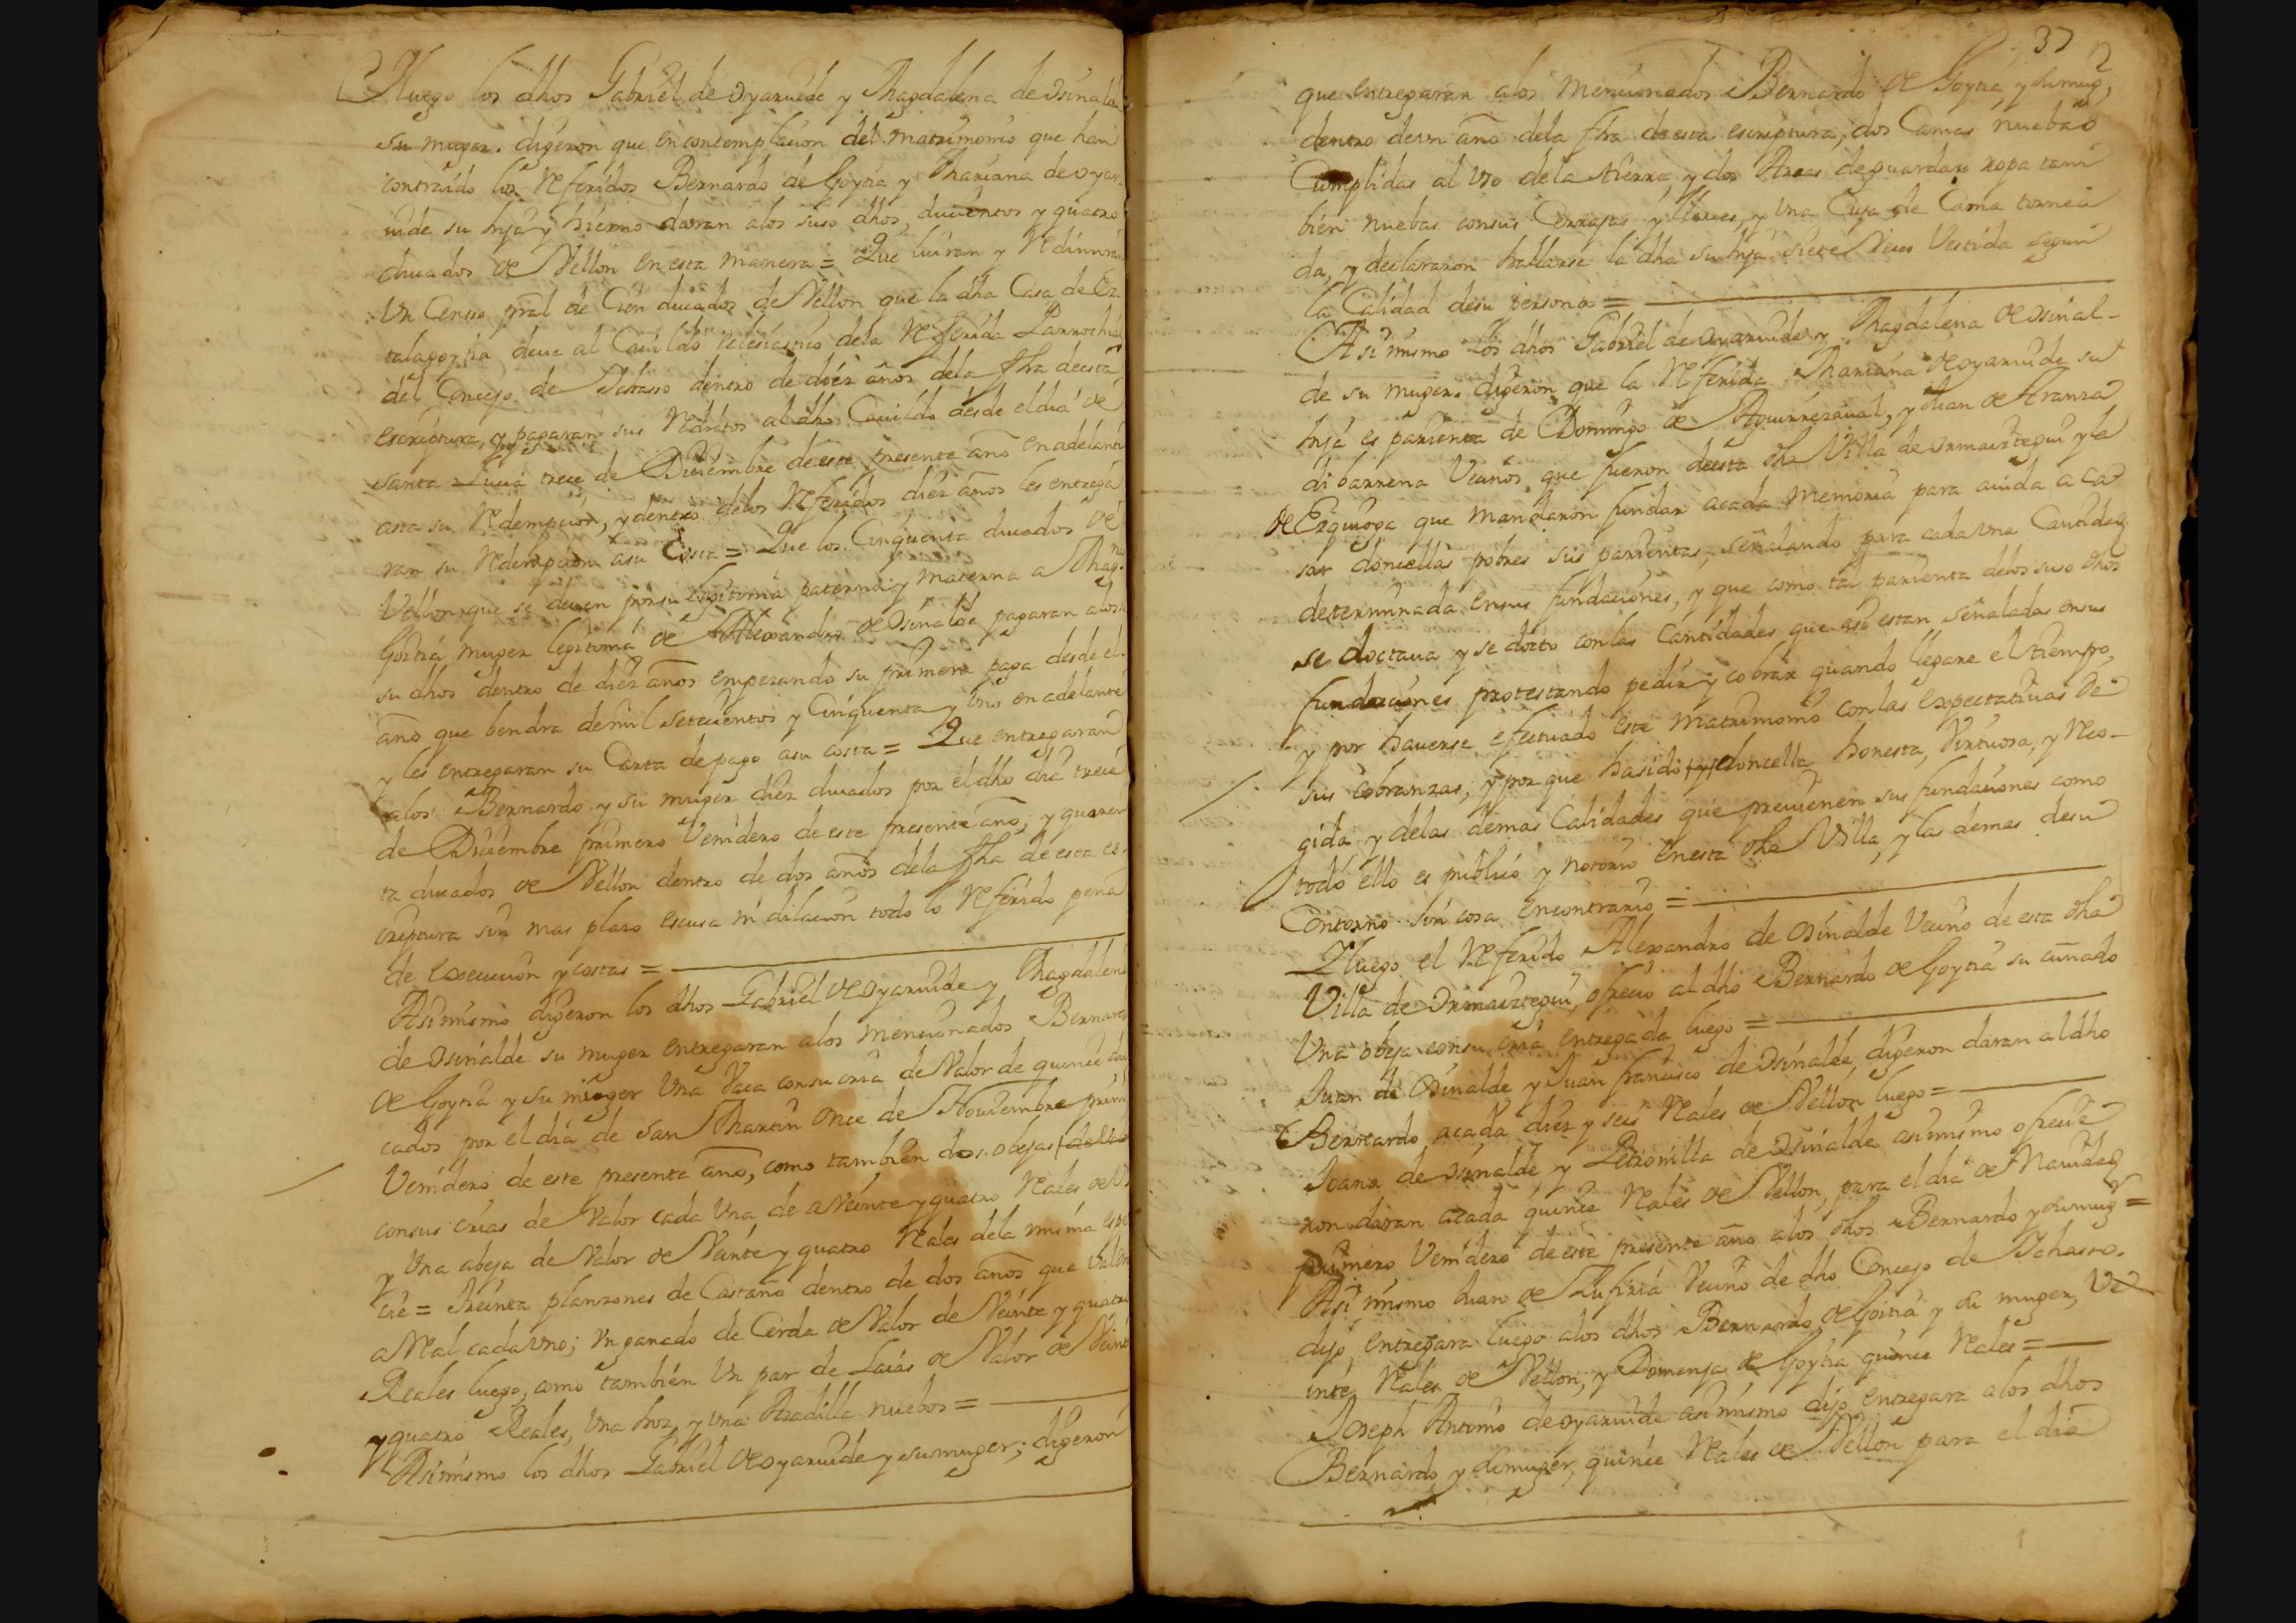 Y luego los dhos Gabriel de oyaruide y Magdalena de osinalde
su muger. digeron que en contemplacion del matrimonio que han
contraido los referidos Bernardo de Goytia y Mariana de oyar-
uide su hija y hierno daran alos suso dhos, ducientos y quatro
ducados de Vellon en esta manera = Que luiran y redimiran
Un Censso pral de Cien ducados de Vellon que la dha Casa de Ez-
talagoytia deue al Cauildo eclesiastico dela referida Parrochia
del Concejo de Ichasso dentro de diez años dela fha de esta
escriptura, y pagaran sus reditos al dho Cauildo desde el dia de
Santa Lucia trece de Diciembre de este presente año en adelante
asta su redempcion, y dentro delos referidos diez años les entrega
ran su redempcion asu Costa = Que los Cinquenta ducados de
Vellon que se deuen por su legitima paterna y materna a Mag.na
Goitia muger legitima de Alexandro de Osinalde pagaran alos
su dhos dentro de diez años empezando su primera paga desde el
año que bendra de mil setecientos y Cinquenta y Uno en adelante
y les entregaran su Carta de pago asu costa = Que entregaran
alos Bernardo y su muger diez ducados por el dho dia trece
de Diciembre primero Venidero de este presente año, y quaren
ta ducados de Vellon dentro de dos años dela fha de esta es-
criptura sin mas plazo escusa ni dilacion todo lo referido pena
de execucion y costas =
Asimismo digeron los dhos Gabriel de oyaruide y Magdalena
de osinalde su muger entregaran alos mencionados Bernardo
de Goytia y su muger Una Vaca con su cria de Valor de quince du
cados por el dia de San Martin Once de Nouiembre prim
Venidero de este presente año, como tambien dos obejas
con sus crias de Valor cada Una de a Veinte y quatro reales de V
y Una abeja de Valor de Veinte y quatro reales dela misma espe
cie = treinta planzones de Castaño dentro de dos años que valen
a real cada Uno; Un ganado de Cerda de Valor de Veinte y quatro
Reales luego, como tambien Un par de Laias de Valor de Veinte
y quatro Reales, Una hoz, y Una Azadilla nuebos =
Asimismo los dhos Gabriel de oyaruide y su muger; digeron
37
que entregaran alos mencionados Bernardo de Goytia y su mug,
dentro de un año dela fha de esta escriptura, dos Camas nuebas
Cumplidas al Uso dela tierra, y dos Arcas de guardar ropa tam
bien nuebas con sus Cerrajas y llaues, y Una Cuja de Cama tornea
da, y declararon hallarse la dha su hija siete Veces Vestida segun
la Calidad de su persona =
Asimismo Los dhos Gabriel de oyaruide y Magdalena de osinal-
de su muger. digeron que la referida Mariana de oyaruide su
hija es parienta de Domingo de Aguirrezaual, y Juan de Aranza
di barrena Vecinos que fueron de esta dha Villa de Ormaiztegui y la
de Ezquioga que mandaron fundar acada memoria para aiuda a ca
sar doncellas pobres sus parientas, señalando para cada Una Cantidad
determinada en sus fundaciones, y que como tal parienta delos suso dhos
se doctaua y se docto con las Cantidades que asi estan señaladas en sus
fundaciones protestando pedir y cobrar quando llegare el tiempo,
y por hauerse efectuado este matrimonio con las expectatiuas de
sus cobranzas, y por que ha sido doncella honesta, Virtuosa, y reco-
gida y delas demas Calidades que preuienen sus fundaciones como
todo ello es publico y notorio en esta dha Villa, y las demas de su
Contorno sin cosa en contrario =
Y luego el referido Alexandro de Osinalde Vecino de esta dha
Villa de Ormaiztegui, ofrecio al dho Bernardo de Goytia su cuñado
Una obeja con su cria entregada luego =
Juan de Osinalde y Juan francisco de Osinalde, digeron daran al dho
Bernardo, acada diez y seis reales de Vellon luego =
Joana de osinalde y Petronilla de Osinalde asimismo ofrecie
ron daran acada quince reales de Vellon, para el dia de Nauidad
primero Venidero de este presente año alos dhos Bernardo y su mug =
Asimismo Juan de Zufiria Vecino de dho Concejo de Ichasso.
dijo entregara luego alos dhos Bernardo de Goitia y su muger, Ve
inte reales de Vellon, y Domenja de Goytia quince reales =
Joseph Antonio de oyaruide asimismo dijo entregara alos dhos
Bernardo y su muger, quince reales de Vellon para el dia